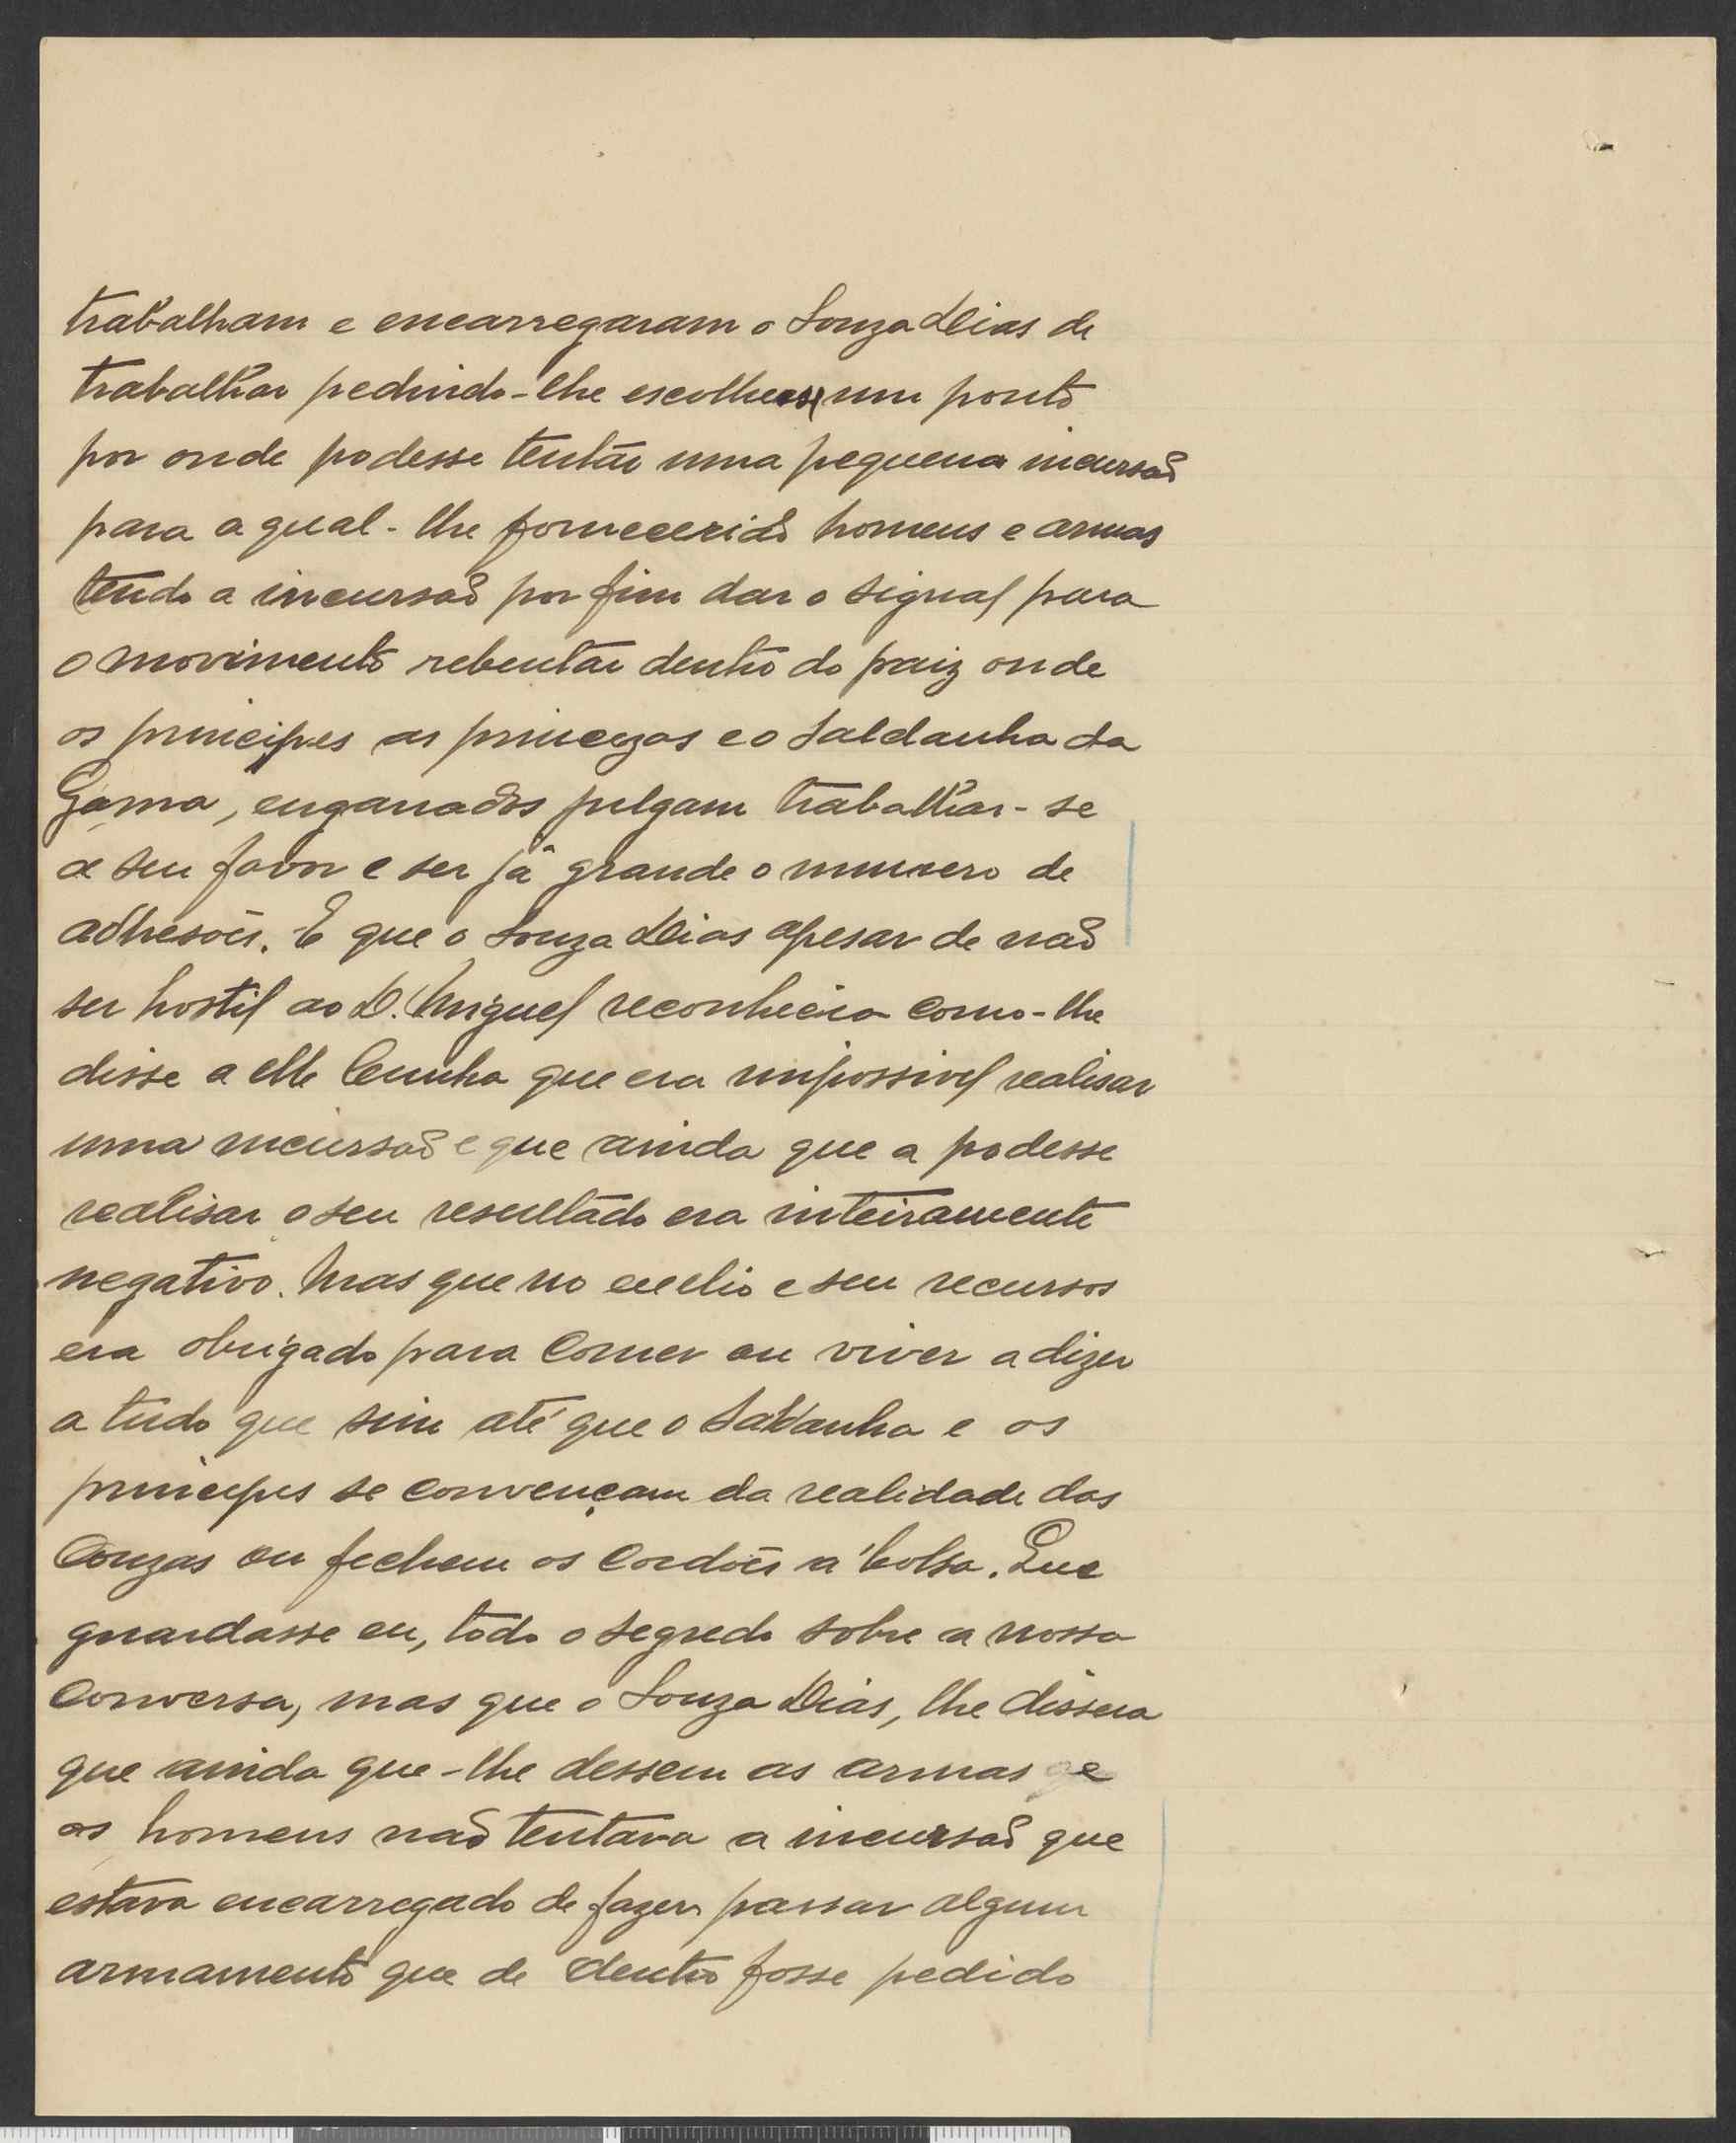 trabalham e encarregaram o Souza Dias de
trabalhar pedindo-lhe escolhesse um ponto
por onde podesse tentar uma pequena incursaõ
para a qual-lhe forneceriaõ homens e armas
tendo a incursaõ por fim dar o signal para
o movimento rebentar dentro do paiz onde
os principes as princezas e o Saldanha da
Gama, enganados julgam trabalhar-se
a seu favor e ser já grande o numero de
adhesoẽs. E que o Souza Dias apesar de naõ
ser hostil ao D. Miguel reconhecia como-lhe
disse a elle Cunha que era impossivel realisar
uma incursaõ e que ainda que a podesse
realisar o seu resultado era inteiramente
negativo. Mas que no exelio e seu recursos
era obrigado para comer ou viver a dizer
a tudo que sim até que o Saldanha e os
principes se convençam da realidade das
Couzas ou fechem os Cordoẽs á bolsa. Que
guardasse eu, todo o segredo sobre a nossa
Conversa, mas que o Souza Dias, lhe dissera
que ainda que-lhe dessem as armas e
os homens naõ tentava a incursaõ que
estava encarregado de fazer passar algum
armamento que de dentro fosse pedido